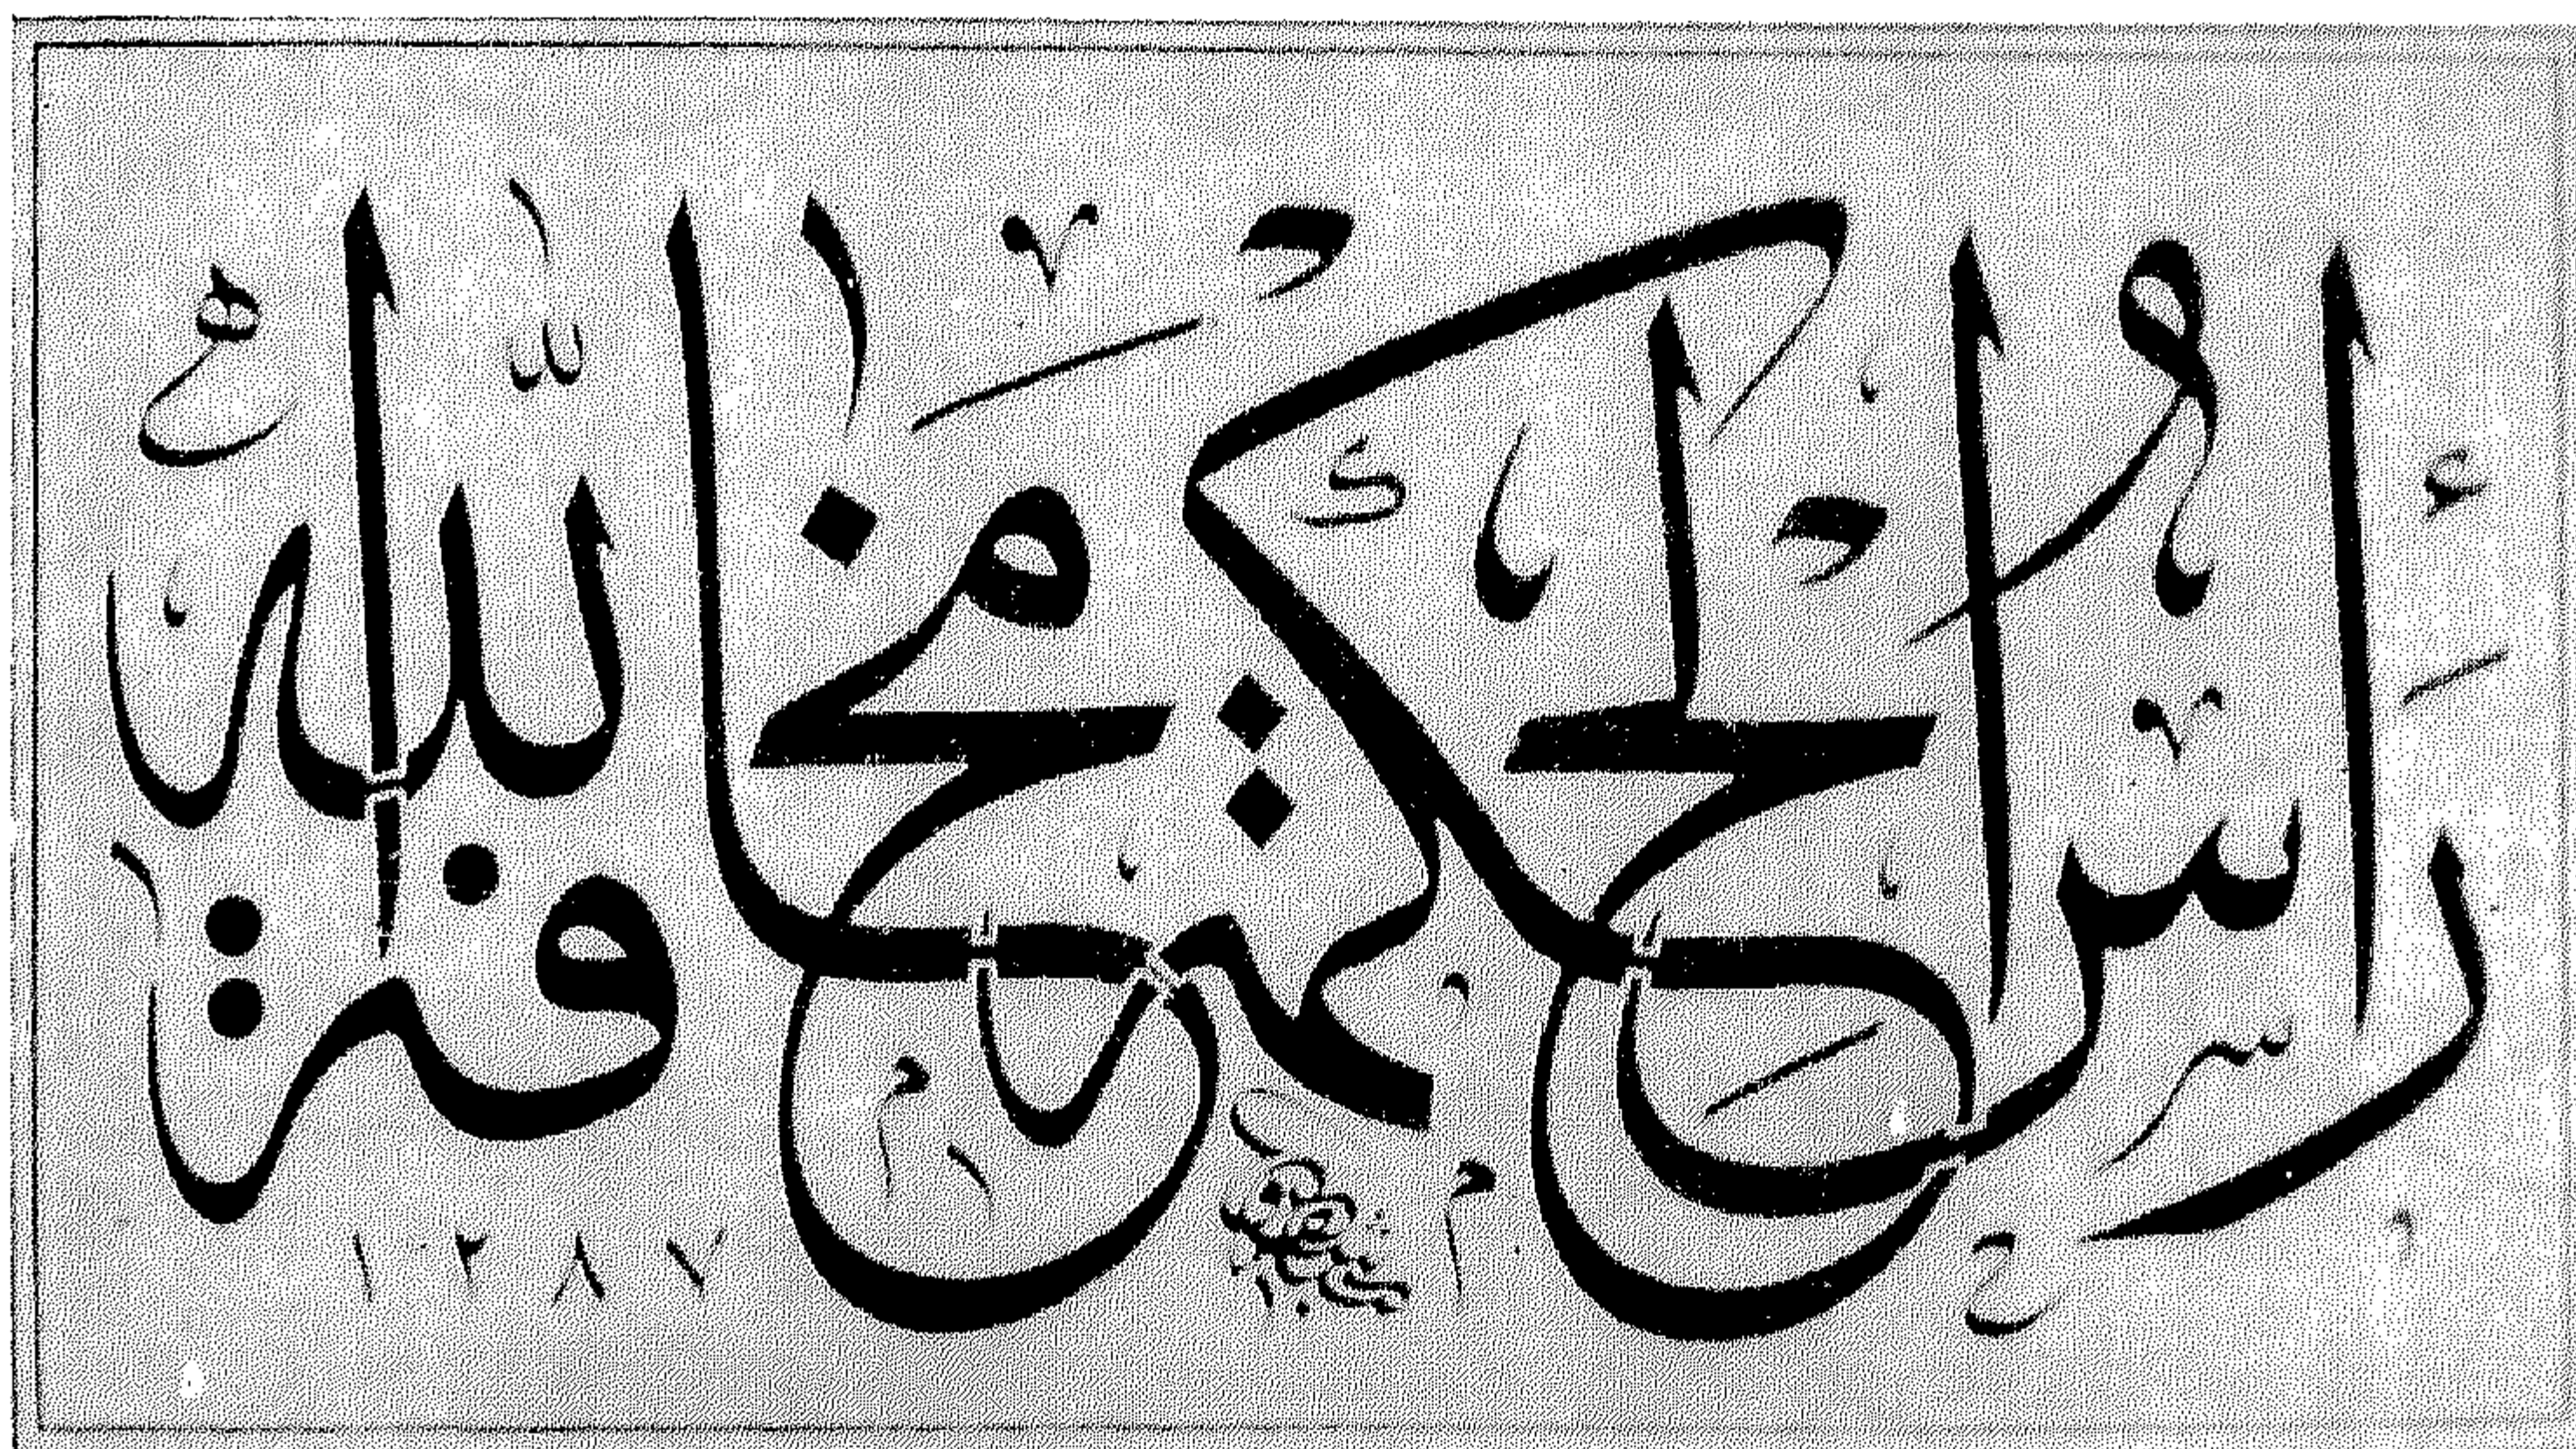 رأس الحكمة مخافة الله
١٢٨٧